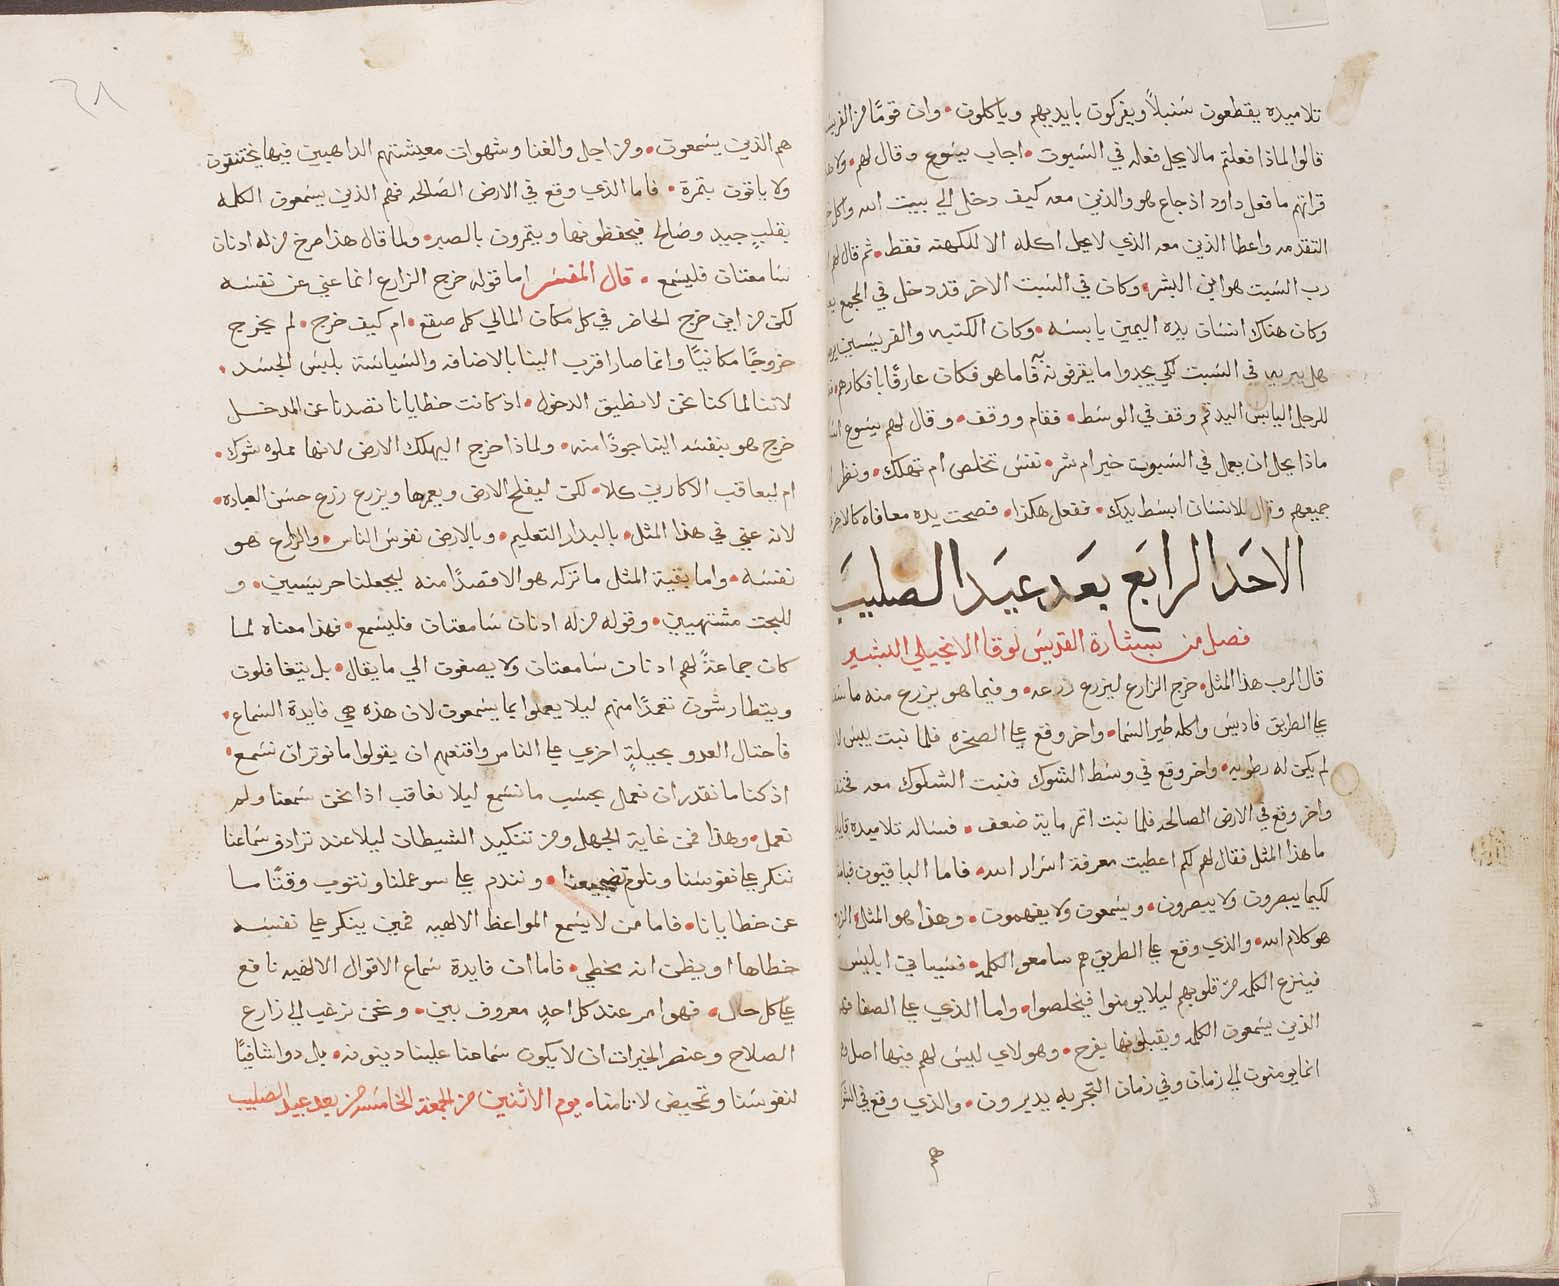 تلاميذه يقطعون سنبلاً ويفركون بايديهم وياكلون • وان قومًا من الفريسـ
قالوا لماذا فعلتم ما لا يحل فعله في السبوت • اجاب يسوع وقال لهم • ولا هذا
قراتم ما فعل داود اذ جاع هو والذين معه كيف دخل الي بيت الله واكل خبز
التقدمه واعطا الذين معه الذي لا يحل اكله الا للكهنه فقط • ثم قال لهم ان
رب السبت هو ابن البشر • وكان في السبت الاخر قد دخل في المجمع يعلم
وكان هناك انسان يده اليمين يابسه • وكان الكتبه والفريسين يرصدونه
هل يبريه في السبت لكي يجدوا ما يقرفونه به فاما هو فكان عارفًا بافكارهم
للرجل اليابس اليد قم وقف في الوسط • فقام ووقف • وقال لهم يسوع
ماذا يحل ان يعمل في السبوت خير ام شر • نفس تخلص ام تهلك • ونظر
جميعهم وقال للانسان ابسط يدك • ففعل هكذا • فصحت يده معافاه كالاخرى
الاحد الرابع بعد عيد الصليب
فصل من بشارة القديس لوقا الانجيلي البشير
قال الرب هذا المثل • خرج الزارع ليزرع زرعه • وفيما هو يزرع منه ما سقط
علي الطريق فاديس واكله طير السما • واخر وقع علي الصخره فلما نبت يبس لانه
لم يكن له رطوبه • واخر وقع في وسط الشوك فنبت الشكوك معه فخنقه
واخر وقع في الارض الصالحه فلما نبت اثمر ماية ضعف • فساله تلاميذه قايلين
ما هذا المثل فقال لهم لكم اعطيت معرفة اسرار الله • فاما الباقيون فبامثال
لكيما يبصرون ولا يبصرون • ويسمعون ولا يفهمون • وهذا هو المثل الزرع
هو كلام الله • والذي وقع علي الطريق هم سامعو الكلمه • فسياتي ابليس
فينزع الكلمه من قلوبهم ليلا يومنوا فيخلصوا • واما الذي علي الصفا فهم
الذين يسمعون الكلمه ويقبلونها بفرح • وهولاي ليس لهم فيها اصل
انما يومنون الي زمان وفي زمان التجربه يديرون • والذي وقع في الشوك
هم
هم الذين يسمعون • ومن اجل والغنا وشهوات معيشتهم الذاهبين فيها يختنقون
ولا ياتون بثمرة • فاما الذي وقع في الارض الصالحه فهم الذين يسمعون الكلمه
بقلب جيد وصالح فيحفظونها ويثمرون بالصبر • ولما قال هذا صرخ من له اذنان
سامعتان فليسمع • قال المفسر اما قوله خرج الزارع انما عني عن نفسه
لكن من اين خرج الحاضر في كل مكان المالي كل صقع • ام كيف خرج • لم يخرج
خروجًا مكانيًا وانما صار اقرب الينا بالاضافه والسياسة بلبس الجسد •
لاننا لما كنا نحن لا نطيق الدخول • اذ كانت خطايانا تصدنا عن المدخل
خرج هو بنفسه الينا جودًا منه • ولماذا خرج اليهلك الارض لانها مملوه شوك •
ام ليعاقب الاكارين كلا • لكن ليفلح الارض ويعمرها ويزرع زرع حسن العباده •
لانه عني في هذا المثل • بالبدار التعليم • وبالارض نفوس الناس • والزارع هو
نفسه • واما بقية المثل ما تركه هو الا قصدًا منه ليجعلنا حريسين • و
للبحث مشتهيين • وقوله من له اذنان سامعتان فليسمع • فهذا معناه لما
كان جماعةً لهم اذنان سامعتان ولا يصغون الي ما يقال • بل يتغافلون
ويتطارشون تعمدًا منهم ليلا يعملوا بما يسمعون لان هذه هي فايدة السماع •
فاحتال العدو بحيلةٍ اخري علي الناس واقنعهم ان يقولوا ما نوثر ان نسمع •
اذ كنا ما نقدر ان نعمل بحسب ما نسمع ليلا نعاقب اذا نحن سمعنا ولم
نعمل • وهذا فمن غاية الجهل ومن تنكيد الشيطان ليلا عند ترادف سماعنا
ننكر علي نفوسنا ونلوم • ونندم علي سو عملنا ونتوب وقتًا ما
عن خطايانا • فاما من لا يسمع المواعظ الالهيه فمتي ينكر علي نفسه
خطاها او يظن انه يخطي • فاما ان فايدة سماع الاقوال الالهيه نافع
علي كل حال • فهو امر عند كل احدٍ معروف بين • ونحن نرغب الي زارع
الصلاح وعنصر الخيرات ان لا يكون سماعنا علينا دينونه • بل دوا شافيًا
لنفوسنا وتمحيض لاثامنا • يوم الاثنين من الجمعة الخامسه من بعد عيد الصليب